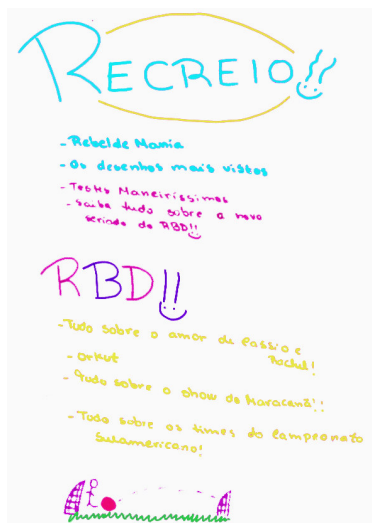 RECREIO!!
- Rebelde Mania
- Os desenhos mais vistos
- Testes Maneiríssimos
- Saiba tudo sobre a novo
seriado do RBD!!
RBD!!
- Tudo sobre o amor de Cassio e
Rachel!
- orkut
- Tudo sobre o show do Maracanã!!
- Todo sobre os times do Campeonato
Sulamericano!